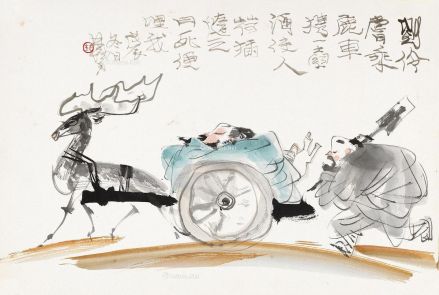 劉伶
嘗乘
鹿車
攜壺
酒使人
荷插
隨之
曰死便
埋我